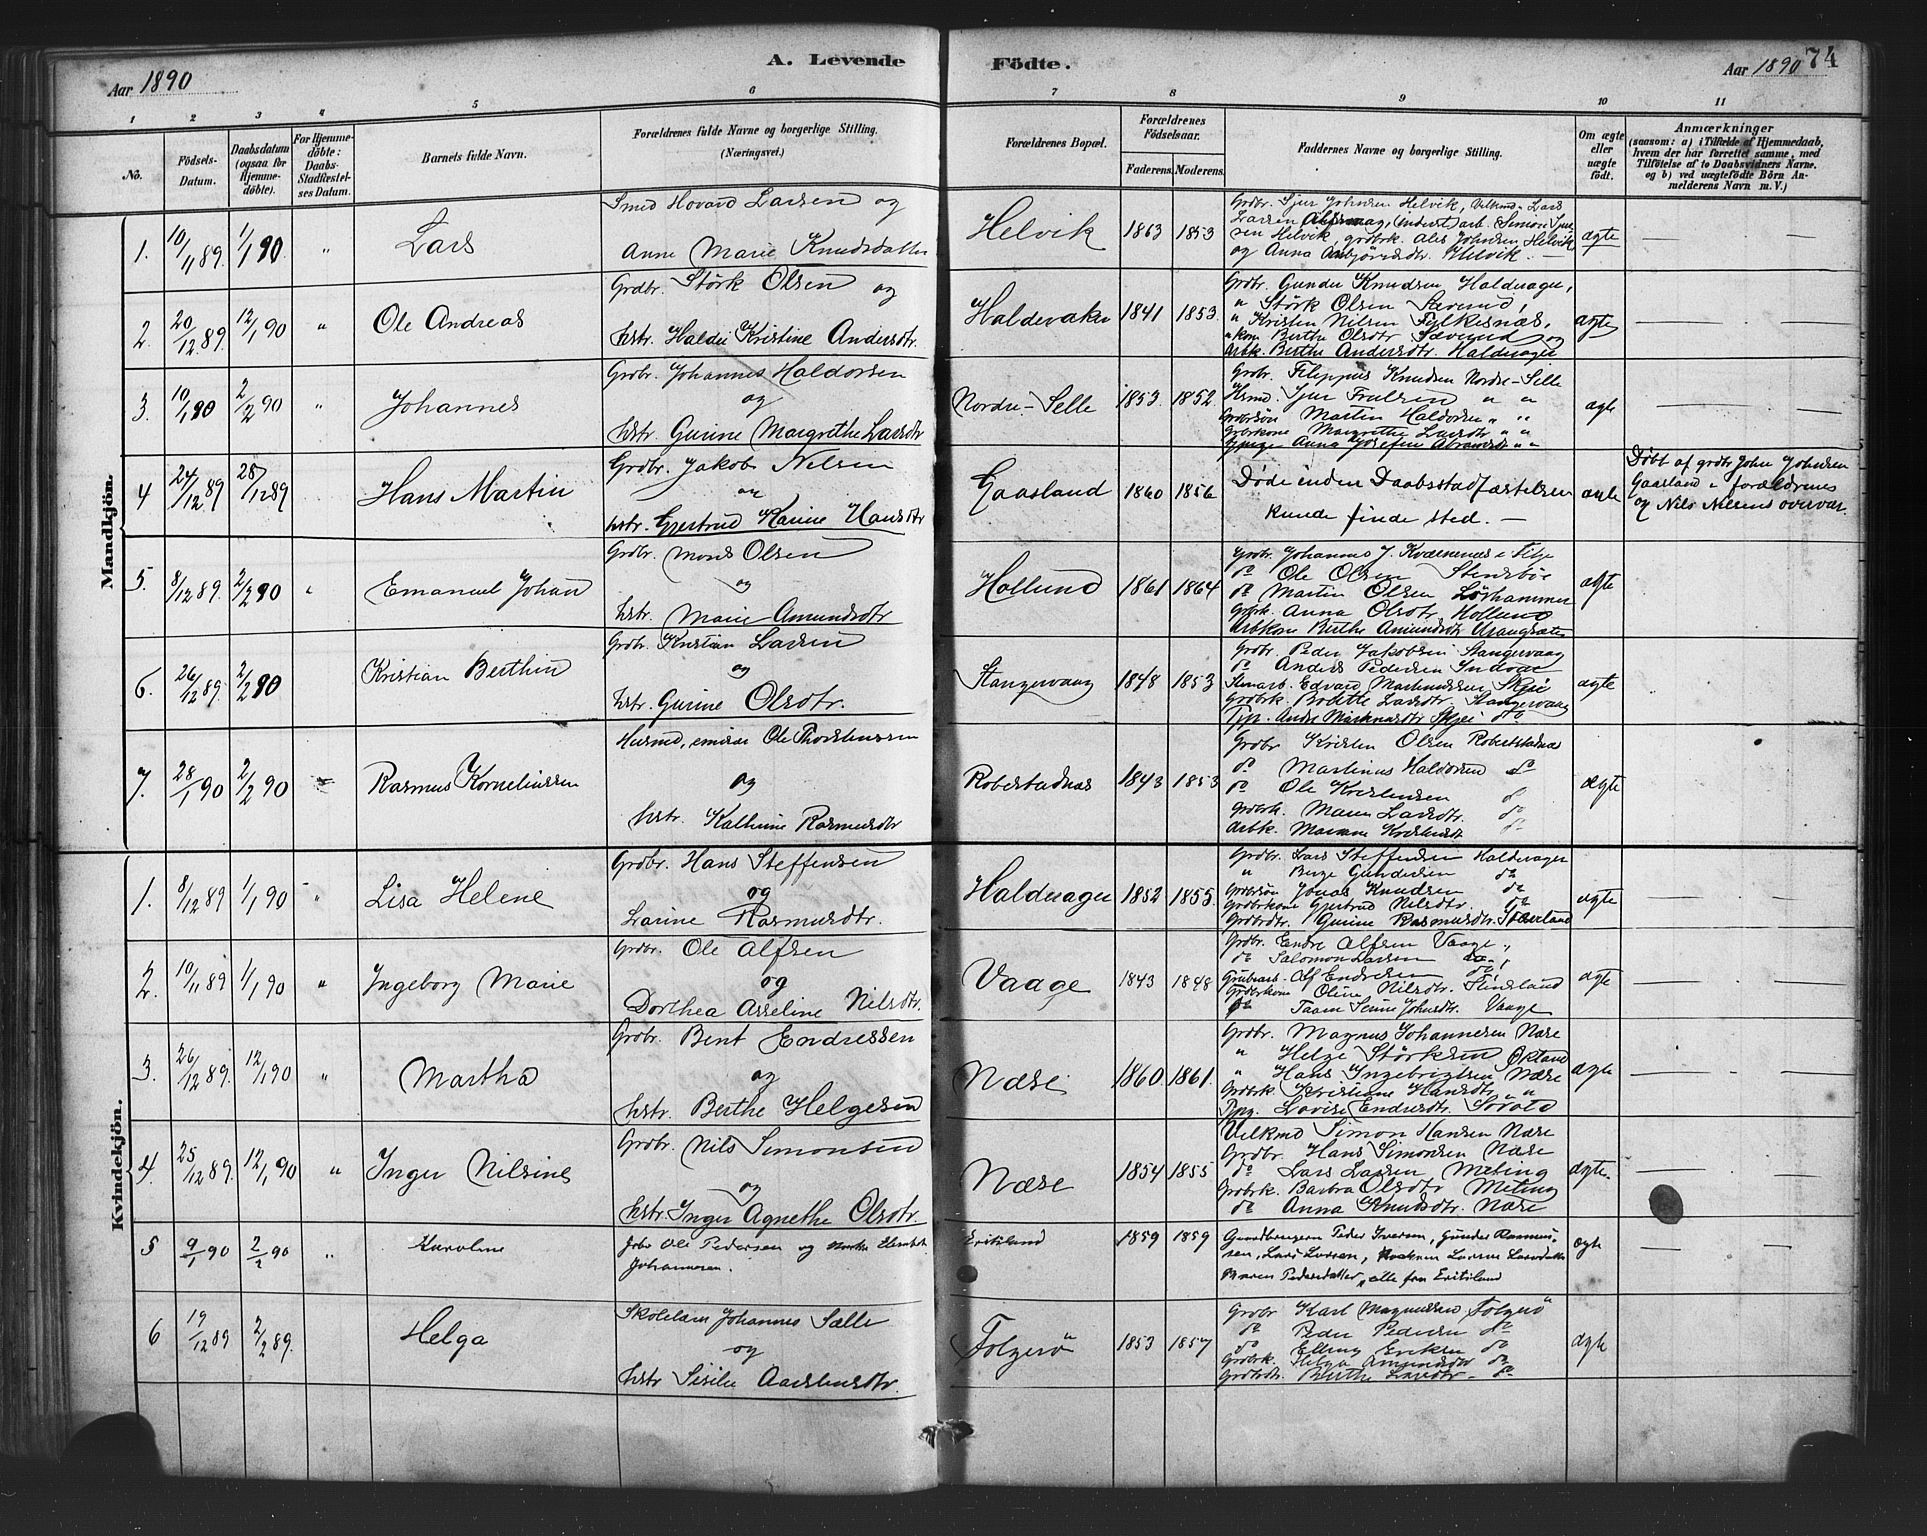 Aar 1890
A. Levende Födte.
Aar 1890 74
1 2 3 4 5 6 7 8 9 10 11
No.
Födsels-Datum.
Daabsdatum (ogsaa for Hjemme-döbte).
For Hjemme-döbte: Daabs-Stadfæstel-ses Datum.
Barnets fulde Navn.
Forældrenes fulde Navne og borgerlige Stilling.
(Næringsvei.)
Forældrenes Bopæl.
Forældrenes Födselsaar.
Faderens. Moderens.
Faddernes Navne og borgerlige Stilling.
Om ægte eller uægte födt.
Anmærkninger
(saasom: a) i Tilfælde af Hjemmedaab,
hvem der har forrettet samme, med
Tilföielse af to Daabsvidners Navne.
og b) ved uægtefödte Börn An-
melderens Navn m. V.)
Mandkjön.
1. 10/11 89. 1/1 90 " Lars
Smed Hovard Larsen og
Anne Marie Knudsdatter
Helvik 1863 1853
Grdbr. Sjur Johnsen Helvik, Lars
Larsen (inderst) arb. Simon Sjur
sen Helvik, grdbrk. Johnsen, Helvik
og Anna Helvik. —
ægte — —
2. 20/12 89. 12/1 90 " Ole Andreas
Grdbr. Störk Olsen og
hstr. Kristine Andersdtr.
Haldevaker 1841 1853.
Grdbr. Gunder Knudsen Haldevager,
" Störk Olsen Sævund,
" Kristen Nilsen Fylkesnæs,
" kone Berthe Olsdtr Sævund og
Arbk. Berthe Andersdtr. Haldevager
ægte — . —
3. 10/1 90 2/2 90 " Johannes
Grdbr. Johannes Haldorsen
og
hstr. Gurine Margrethe Larsdtr
Nordre-Selle 1853. 1852.
Grdbr. Filippus Knudsen Nordre-Selle
Hsmd. Sjur " "
Grdbrsön Martin Haldorsen " "
Grdbrkone Margrethe Larsdtr " "
Anna Josefine " "
ægte — —
4 24/12 89 28/12 89 Hans Martin
Grdbr. Jakob Nilsen
og
hstr. Gjertrud Karine Hansdtr
Gaasland 1860 1856
Døde inden Daabsstadfæstelsen
kunde finde sted. —
ægte
Døbt af grdbr John Johnsen
Gaasland i forældrenes
og Nils Nilsens overvær.
5. 8/12 89. 2/2 90 " Emanuel Johan
Grdbr. Mons Olsen
og
hstr. Marie Amundsdtr
Hollund 1861 1864
Grdbr. Johannes J. Kværnenæs
do Ole Olsen Stensbø
do Martin Olsen Lørhammer
Grdbrk. Anna Olsdtr Hollund
Arbkone Berthe Amundsdtr
ægte
6. 26/12 89. 2/2 90 Kristian Berthin
Grdbr. Kristian Larsen
og
hstr. Gurine Olsdtr.
Stangervaag 1848 1853
Grdbr. Peder Jakobsen Stangervaag
do Anders Pedersen Indvær
Stenarb. Edvard Martinussen Skjei
Grdbrk. Larsdtr. Stangervaag
Tjp. Skjei do
ægte
7. 28/1 90 2/2 90 Rasmus Korneliussen
Husmd, Ole Thorstenssen
og
hstr. Kathrine Rasmusdtr
Robestadnæs 1843 1853
Grdbr Kristen Olsen Robestadnæs
do. Martinus Haldorsen do
do Ole Kristensen do
Grdbrk. Maren Larsdtr. do
Arbk. Mariane do
ægte
Kvindekjön.
1. 8/12 89 1/1 90 " Lisa Helene
Grdbr. Hans Steffensen
og
Larine Rasmusdtr.
Haldevager 1852 1855.
Grdbr. Lars Steffensen Haldevager
" Gundersen do
Grdbrsøn Jonas Knudsen do
Grdbrkone Gjertrud Nilsdtr. do
Grdbrdtr. Gurine Rasmusdtr.
ægte — . —
2. 10/11 89 1/1 90 " Ingeborg Marie
Grdbr. Ole Alfsen
og
Dorthea Asseline Nilsdtr.
Vaage 1843 1848
Grdbr. Endre Alfsen Vaage,
do Salomon Larsen do,
Endresen do,
Grdbrkone Oline Nilsdtr. Tindeland
do Johnsdtr. Vaage
ægte — —
3. 26/12 89. 12/1 90 " Martha
Grdbr. Bent Endressen
og
hstr. Berthe Helgesen
Næse 1860. 1861.
Grdbr. Magnus Johannesen Næse
" Helge Störksen Økland
" Hans Ingebrigtsen Næse
Grdbrk. Kristiane Hansdtr. " "
Tjpg. Lovise Endresdtr.
ægte — . —
4. 25/12 89. 12/1 90 " Inger Nilsine
Grdbr. Nils Simonsen
og
hstr. Inger Agnethe Olsdtr.
Næse 1854 1855
Simon Hansen Næse
Grdbr. Hans Simonsen Næse
do Lars Larsen Meling
Grdbrk. Barbra Olsdtr Meling
do Anna Knudsdtr. Næse
ægte — . —
5 9/1 90 2/2 90 " Karoline
Gdbr Ole Pedersen og
Johannesen.
Eritsland 1859 1859
Gaardbrugerne Peder Iversen, Gunder Rasmus-
sen, Lars Larsen, Larsdatter
Maren Pedersdatter, alle fra Eritsland
ægte — —
6 19/12 89 2/2 89. Helga
Skolelærer Johannes Sælle
og
hstr Sisilie
Folgerö 1853 1857
Grdbr Karl Magnussen Folgerö
do Peder Pedersen do
do Elling Eriksen do
Grdbrk. Helga Amundsdtr do
Grdbrdtr. Berthe Larsdtr. do
ægte